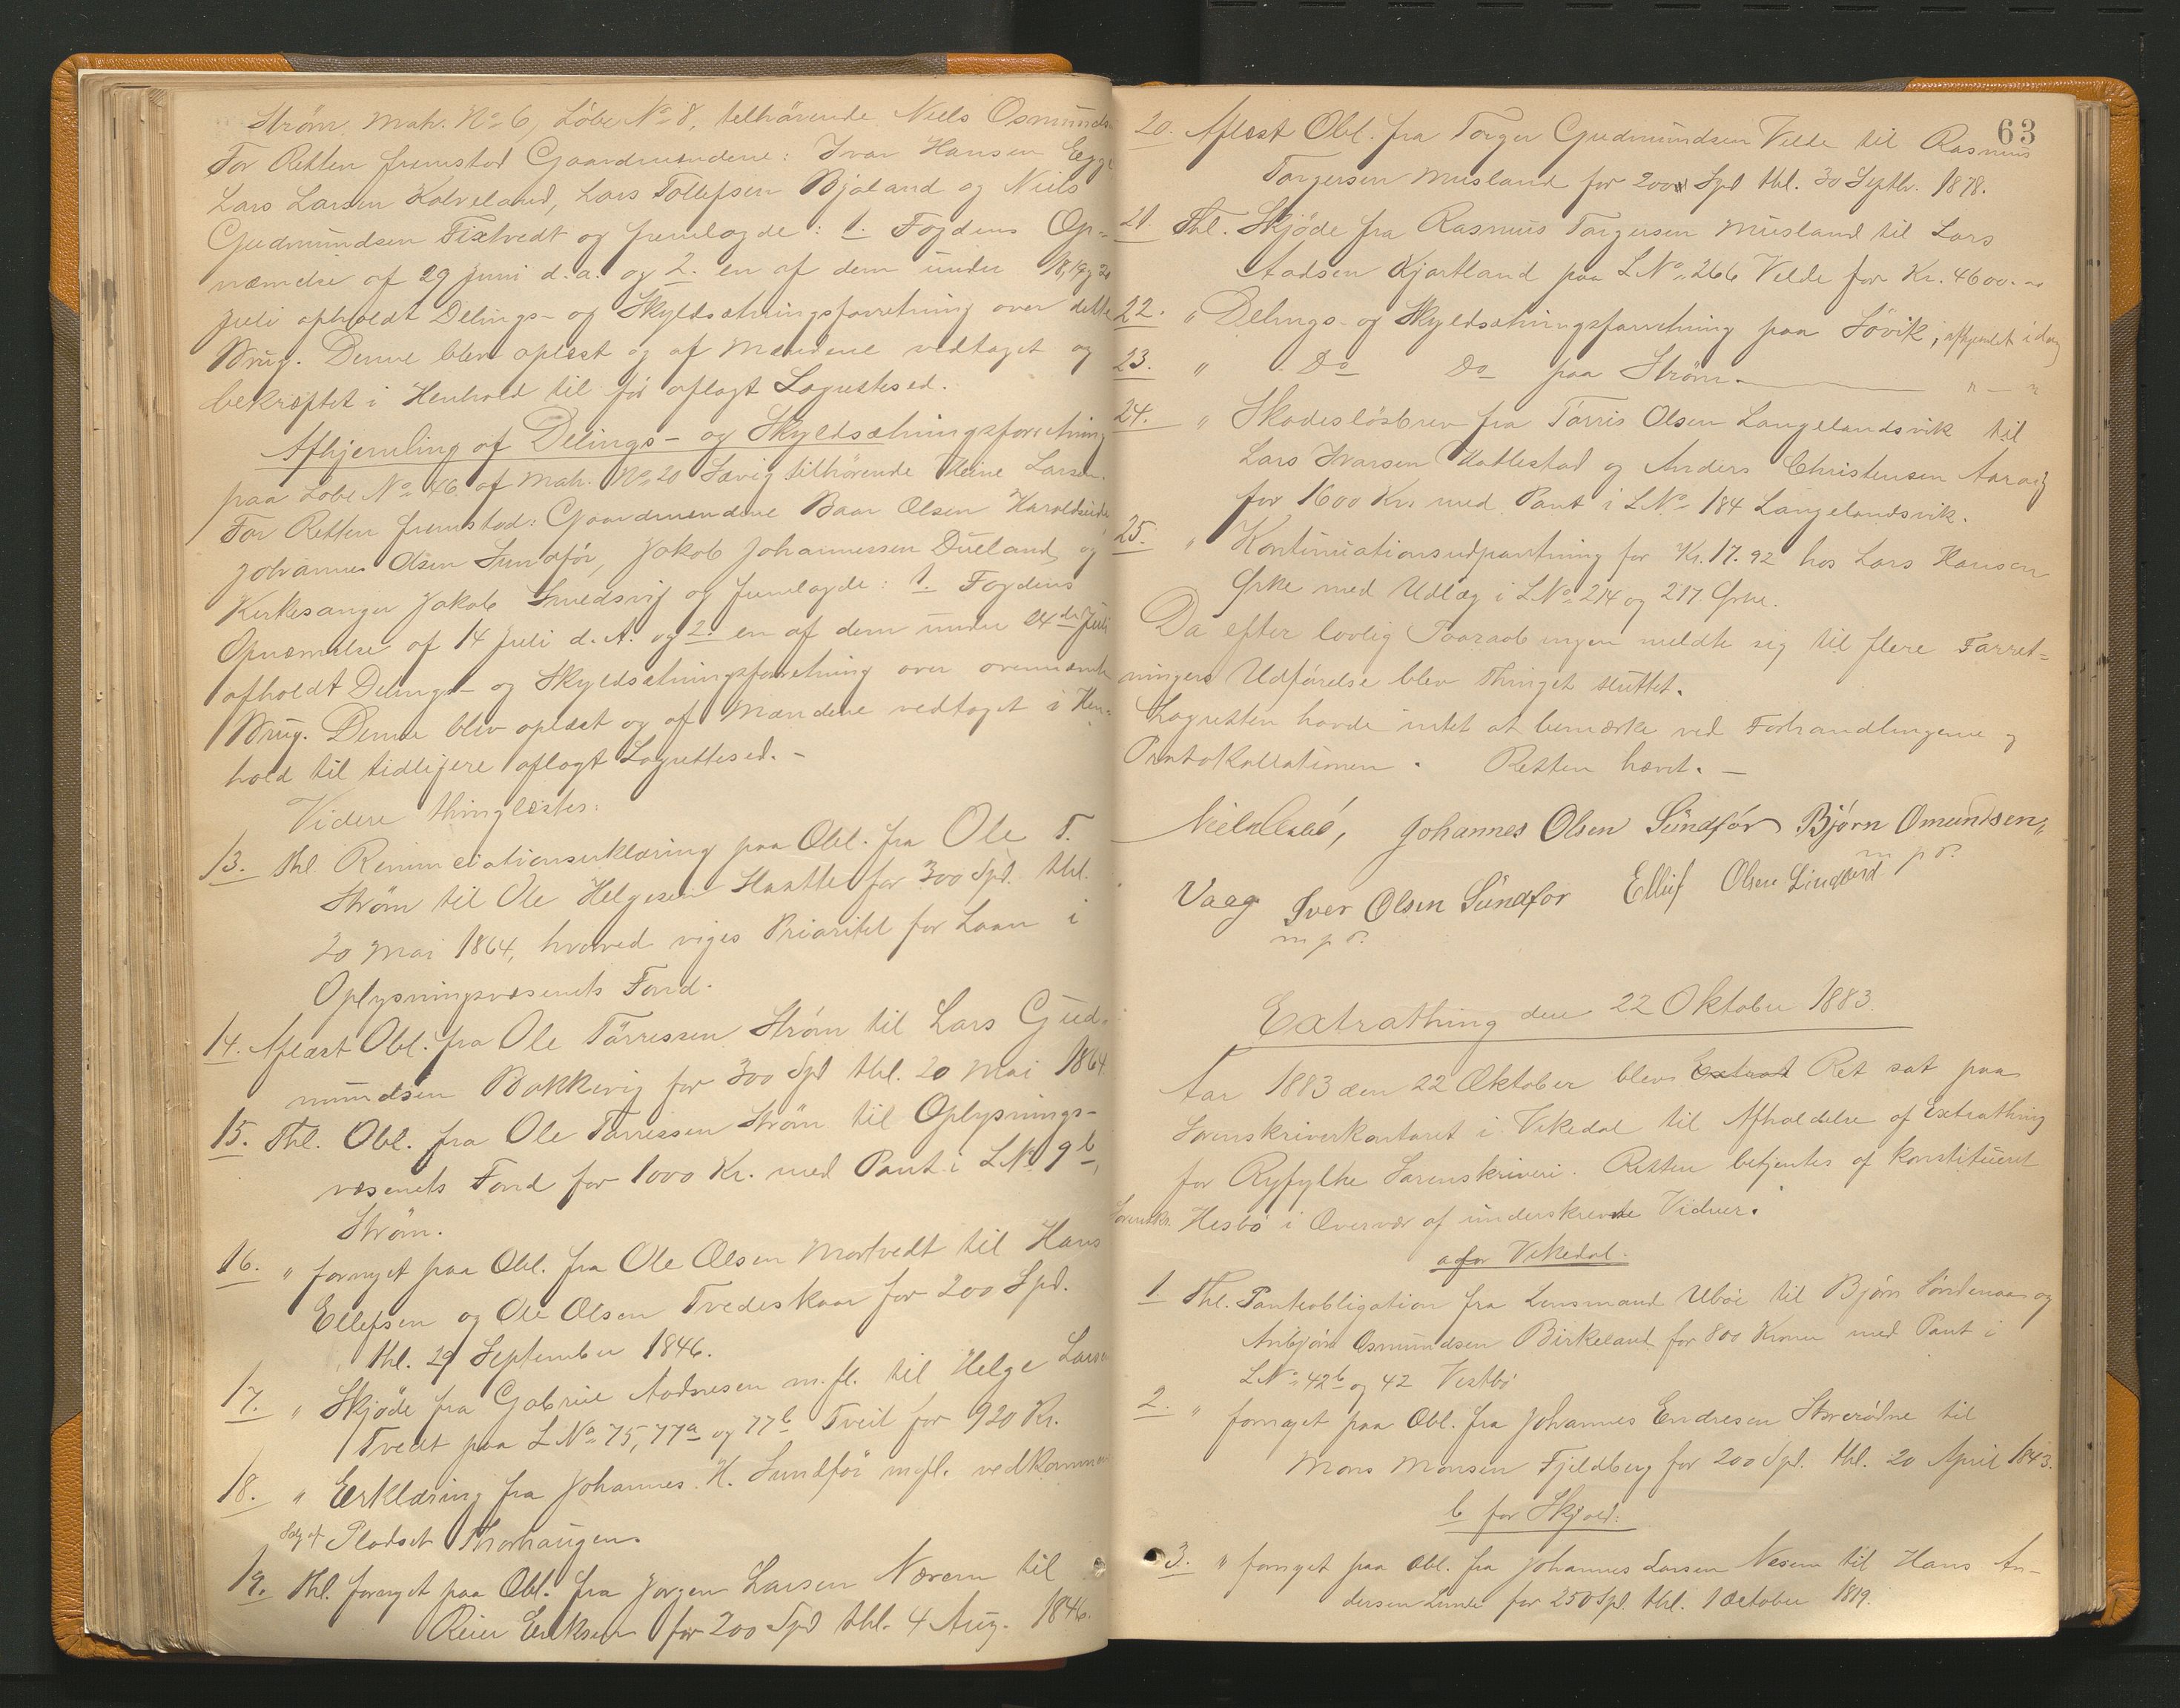 Strøm Matr. No 6, Løbe No 8, tilhørende Niels Osmunds
For Retten fremstod Gaardmændene: Ivar Hansen Egge
Lars Larsen Kolveland, Lars Tollefsen Bjøland og Niels
Gudmundsen Fixtvedt og fremlagde: 1. Fogdens Op-
nævnelse af 29 Juni d. a. og 2. en af dem under 18, 19 og 20
Juli afholdt Delings- og Skyldsætningsforretning over dette
Brug. Denne blev oplæst og af Mændene vedtaget og
bekræftet i Henhold til før aflagt Lagrettesed.
Afhjemling af Delings- og Skyldsætningsforretning
paa Løbe No 46 af Matr. No 20 Søvig tilhørende Heine Larsen.
For Retten fremstod: Gaardmændene Baar Olsen Haraldseide
Johannes Olsen Sundfør, Jakob Johannessen Dueland og
Kirkesanger Jakob Smedsvig og fremlagde: 1. Fogdens
Opnævnelse af 14 Juli d. A. og 2. en af dem under 24de Juli
afholdt Delings- og Skyldsætningsforretning over ovennævnte
Brug. Denne blev oplæst og af Mændene vedtaget i Hen-
hold til tidligere aflagt Lagrettesed. -
Videre thinglæstes:
13. Thl Renunciationserklæring paa Obl. fra Ole T.
Strøm til Ole Helgesen Haatte for 300 Spd. thl.
20 Mai 1864, hvorved viges Prioritet for Laan i
Oplysningsvæsenets Fond.
14. Aflæst Obl. fra Ole Tørressen Strøm til Lars Gud-
mundsen Bakkevig for 300 Spd thl. 20 Mai 1864
15. Thl. Obl. fra Ole Tørressen Strøm til Oplysnings-
væsenets Fond for 1000 Kr. med Pant i L No 9 b,
Strøm.
16. " fornyet paa Obl. fra Ole Olsen Mortvedt til Hans
Ellefsen og Ole Olsen Tvedeskaar for 200 Spd.
thl. 29 September 1846.
17. " Skjøde fra Gabriel Aadnesen m. fl. til Helge Larsen
Tvedt paa L No 75, 77a og 77b Tveit for 920 Kr.
18. " Erklæring fra Johannes H. Sundfør m.fl. vedkommen
Salg af Pladset Thorhaugen.
19. Thl. fornyet paa Obl. fra Jørgen Larsen Nærem til
Reier Eriksen for 200 Spd thl. 4 Aug. 1846.
63
20. Aflæst Obl. fra Torger Gudmundsen Velde til Rasmus
Torgersen Musland for 200 Spd thl. 30 Septbr. 1878.
21. Thl. Skjøde fra Rasmus Torgersen Musland til Lars
Aadsen Kjortland paa L No 266 Velde for Kr. 4600.00
22. " Delings- og Skyldsætningsforretning paa Søvik, afhjemlet idag
23. " Do Do paa Strøm. " - "
24. " Skadesløsbrev fra Tørris Olsen Langelandsvik til
Lars Ivarsen Hattestad og Anders Christensen Aarag
for 1600 Kr. med Pant i L No 184 Langelandsvik.
25. " Kontinuationsudpantning for Kr. 17.92 hos Lars Hansen
Ørke med Udlæg i L No 214 og 217. Ørke.
Da efter lovlig Paaraab ingen meldte sig til flere Forret-
ningers Udførelse blev Thinget sluttet.
Lagretten havde intet at bemærke ved Forhandlingerne og
Protokollationen. Retten hævet. -
Johannes Olsen Sundfør Bjørn Omundsen,
m p r.
Vaag Iver Olsen Sundfør Ellif Olsen
m p r.
Extrathing den 22 Oktober 1883.
Aar 1883 den 22 Oktober blev Extrat Ret sat paa
Sorenskriverkontoret i Vikedal til Afholdelse af Extrathing
for Ryfylke Sorenskriveri. Retten betjentes af konstitueret
Sorenskr. Hesbø i Overvær af underskrevne Vidner.
a for Vikedal.
1 Thl. Panteobligation fra Lensmand Ubøe til Bjørn Søndenaa og
Anbjørn Osmundsen Birkeland for 800 Kroner med Pant i
L No 42b og 42 Vestbø
2. " fornyet paa Obl. fra Johannes Endresen Storerødne til
Mons Monsen Fjeldberg for 200 Spd. thl. 20 April 1843.
b for Skjold:
3. " fornyet paa Obl. fra Johannes Larsen Næsem til Hans An-
dersen Lunde for 250 Spd. thl. 1 October 1819.